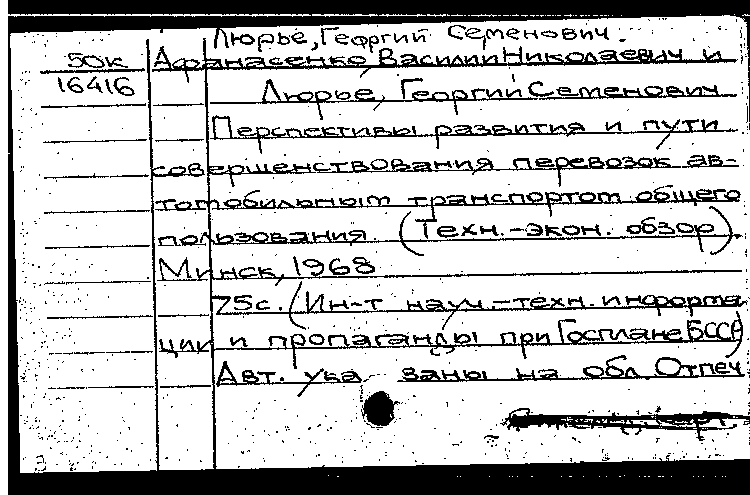 Люрье, Георгий Семенович.
50к Афанасенко, Василий Николаевич и
16416 Люрье, Георгий Семенович
Перспективы развития и пути
совершенствования перевозок ав-
томобильным транспортом общего
пользования (Техн.-экон. обзор).
Минск, 1968
75с. (Ин-т науч.-техн. информа
ции и пропаганды при Госплане БССР)
Авт. ука заны на обл. Отпеч